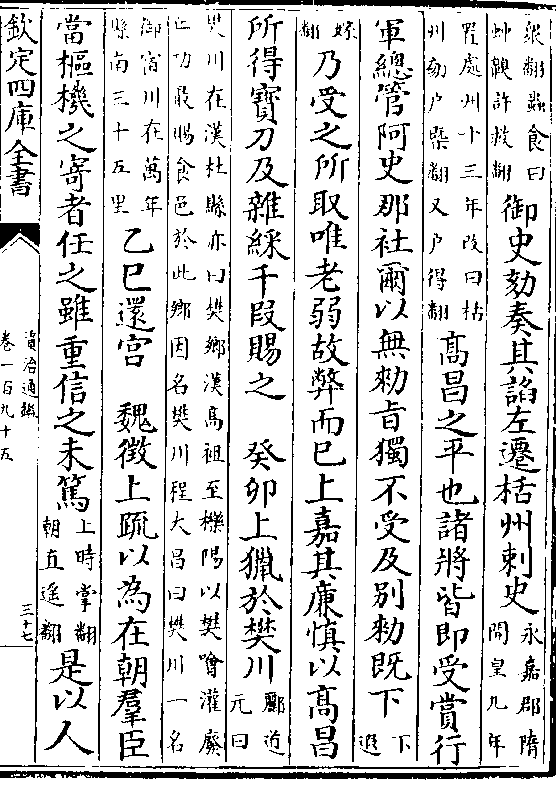 衆翻蟲食曰
蚛齅許救翻
御史劾奏其諂左遷括州刺史
永嘉郡隋
開皇九年
置處州十三年改曰括
州劾户槩翻又户得翻
髙昌之平也諸將皆即受賞行
軍總管阿史那社爾以無勑旨獨不受及别勑既下
下
遐
嫁
翻
乃受之所取唯老弱故弊而已上嘉其廉慎以髙昌
所得寳刀及雜綵千段賜之 癸卯上獵於樊川
酈道
元曰
樊川在漢杜縣亦曰樊鄉漢髙祖至櫟陽以樊噲灌廢
丘功最賜食邑於此鄉因名樊川程大昌曰樊川一名
御宿川在萬年
縣南三十五里
乙巳還宫 魏徵上疏以為在朝羣臣
當樞機之寄者任之雖重信之未篤
上時掌翻
朝直遥翻
是以人
欽定四庫全書
資治通鑑
卷一百九十五
三十七